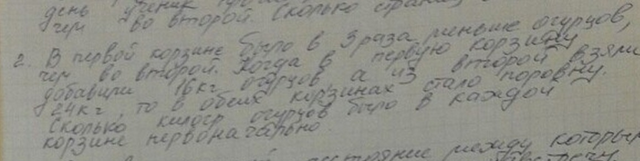 день ученик
чем во второй. Сколько
2. В первой корзине было в 3 раза меньше огурцов,
чем во второй. Когда в первую корзину
добавили 16кг огурцов а из второй взяли
24кг, то в обеих корзинах стало поровну.
Сколько килогр огурцов было в каждой
корзине первоначально
между которым